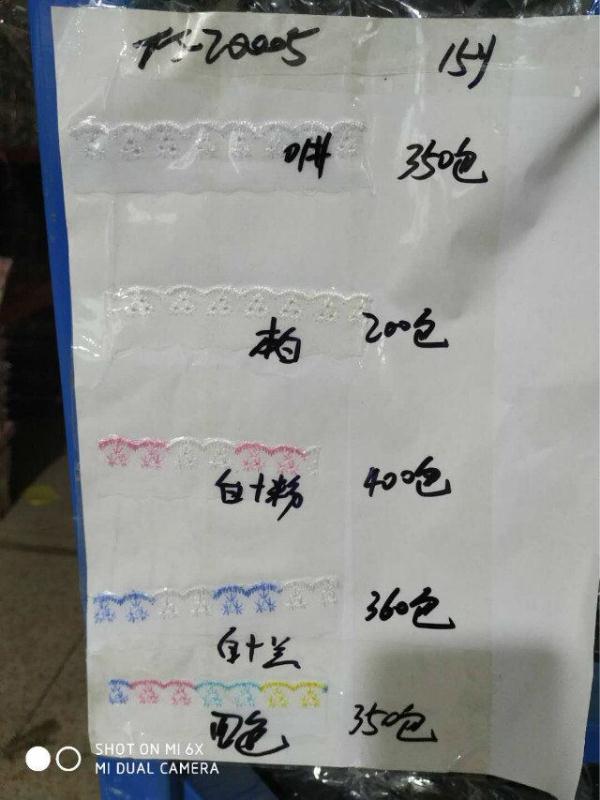 TFS-20005 15y
350包
本白 200包
白+粉 400包
白+兰 360包
四色 350包
SHOT ON MI 6X
MI DUAL CAMERA